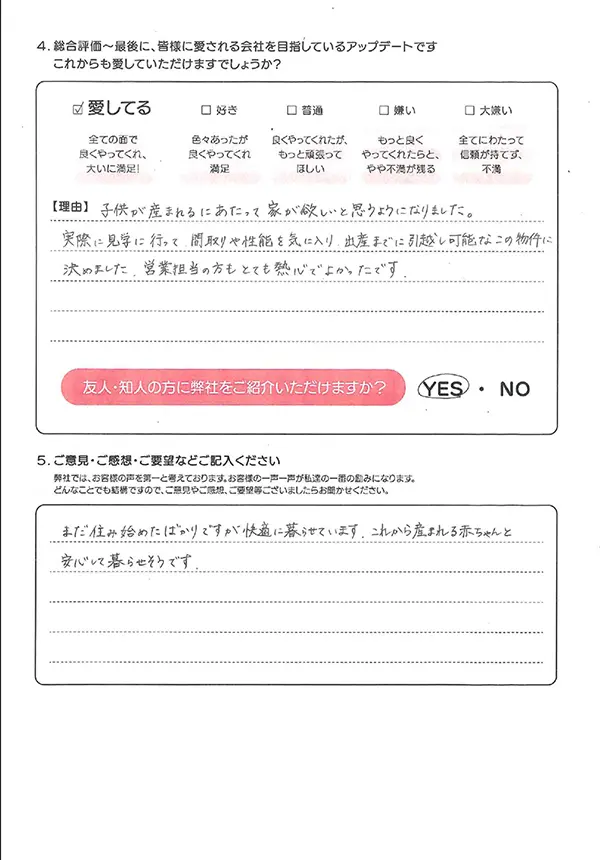 4. 総合評価～最後に、皆様に愛される会社を目指しているアップデートです
これからも愛していただけますでしょうか？
☑ 愛してる □ 好き □ 普通 □ 嫌い □ 大嫌い
全ての面で 色々あったが 良くやってくれたが、 もっと良く 全てにわたって
良くやってくれ、 良くやってくれ もっと頑張って やってくれたらと、 信頼が持てず、
大いに満足！ 満足 ほしい やや不満が残る 不満
【理由】子供が産まれるにあたって家が欲しいと思うようになりました。
実際に見学に行って、間取りや性能を気に入り、出産までに引越し可能なこの物件に
決めました。営業担当の方もとても熱心でよかったです。
友人・知人の方に弊社をご紹介いただけますか？ YES ・ NO
5. ご意見・ご感想・ご要望などご記入ください
弊社では、お客様の声を第一と考えております。お客様の一声一声が私達の一番の励みになります。
どんなことでも結構ですので、ご意見やご感想、ご要望等ございましたらお聞かせください。
まだ住み始めたばかりですが快適に暮らせています。これから産まれる赤ちゃんと
安心して暮らせそうです。